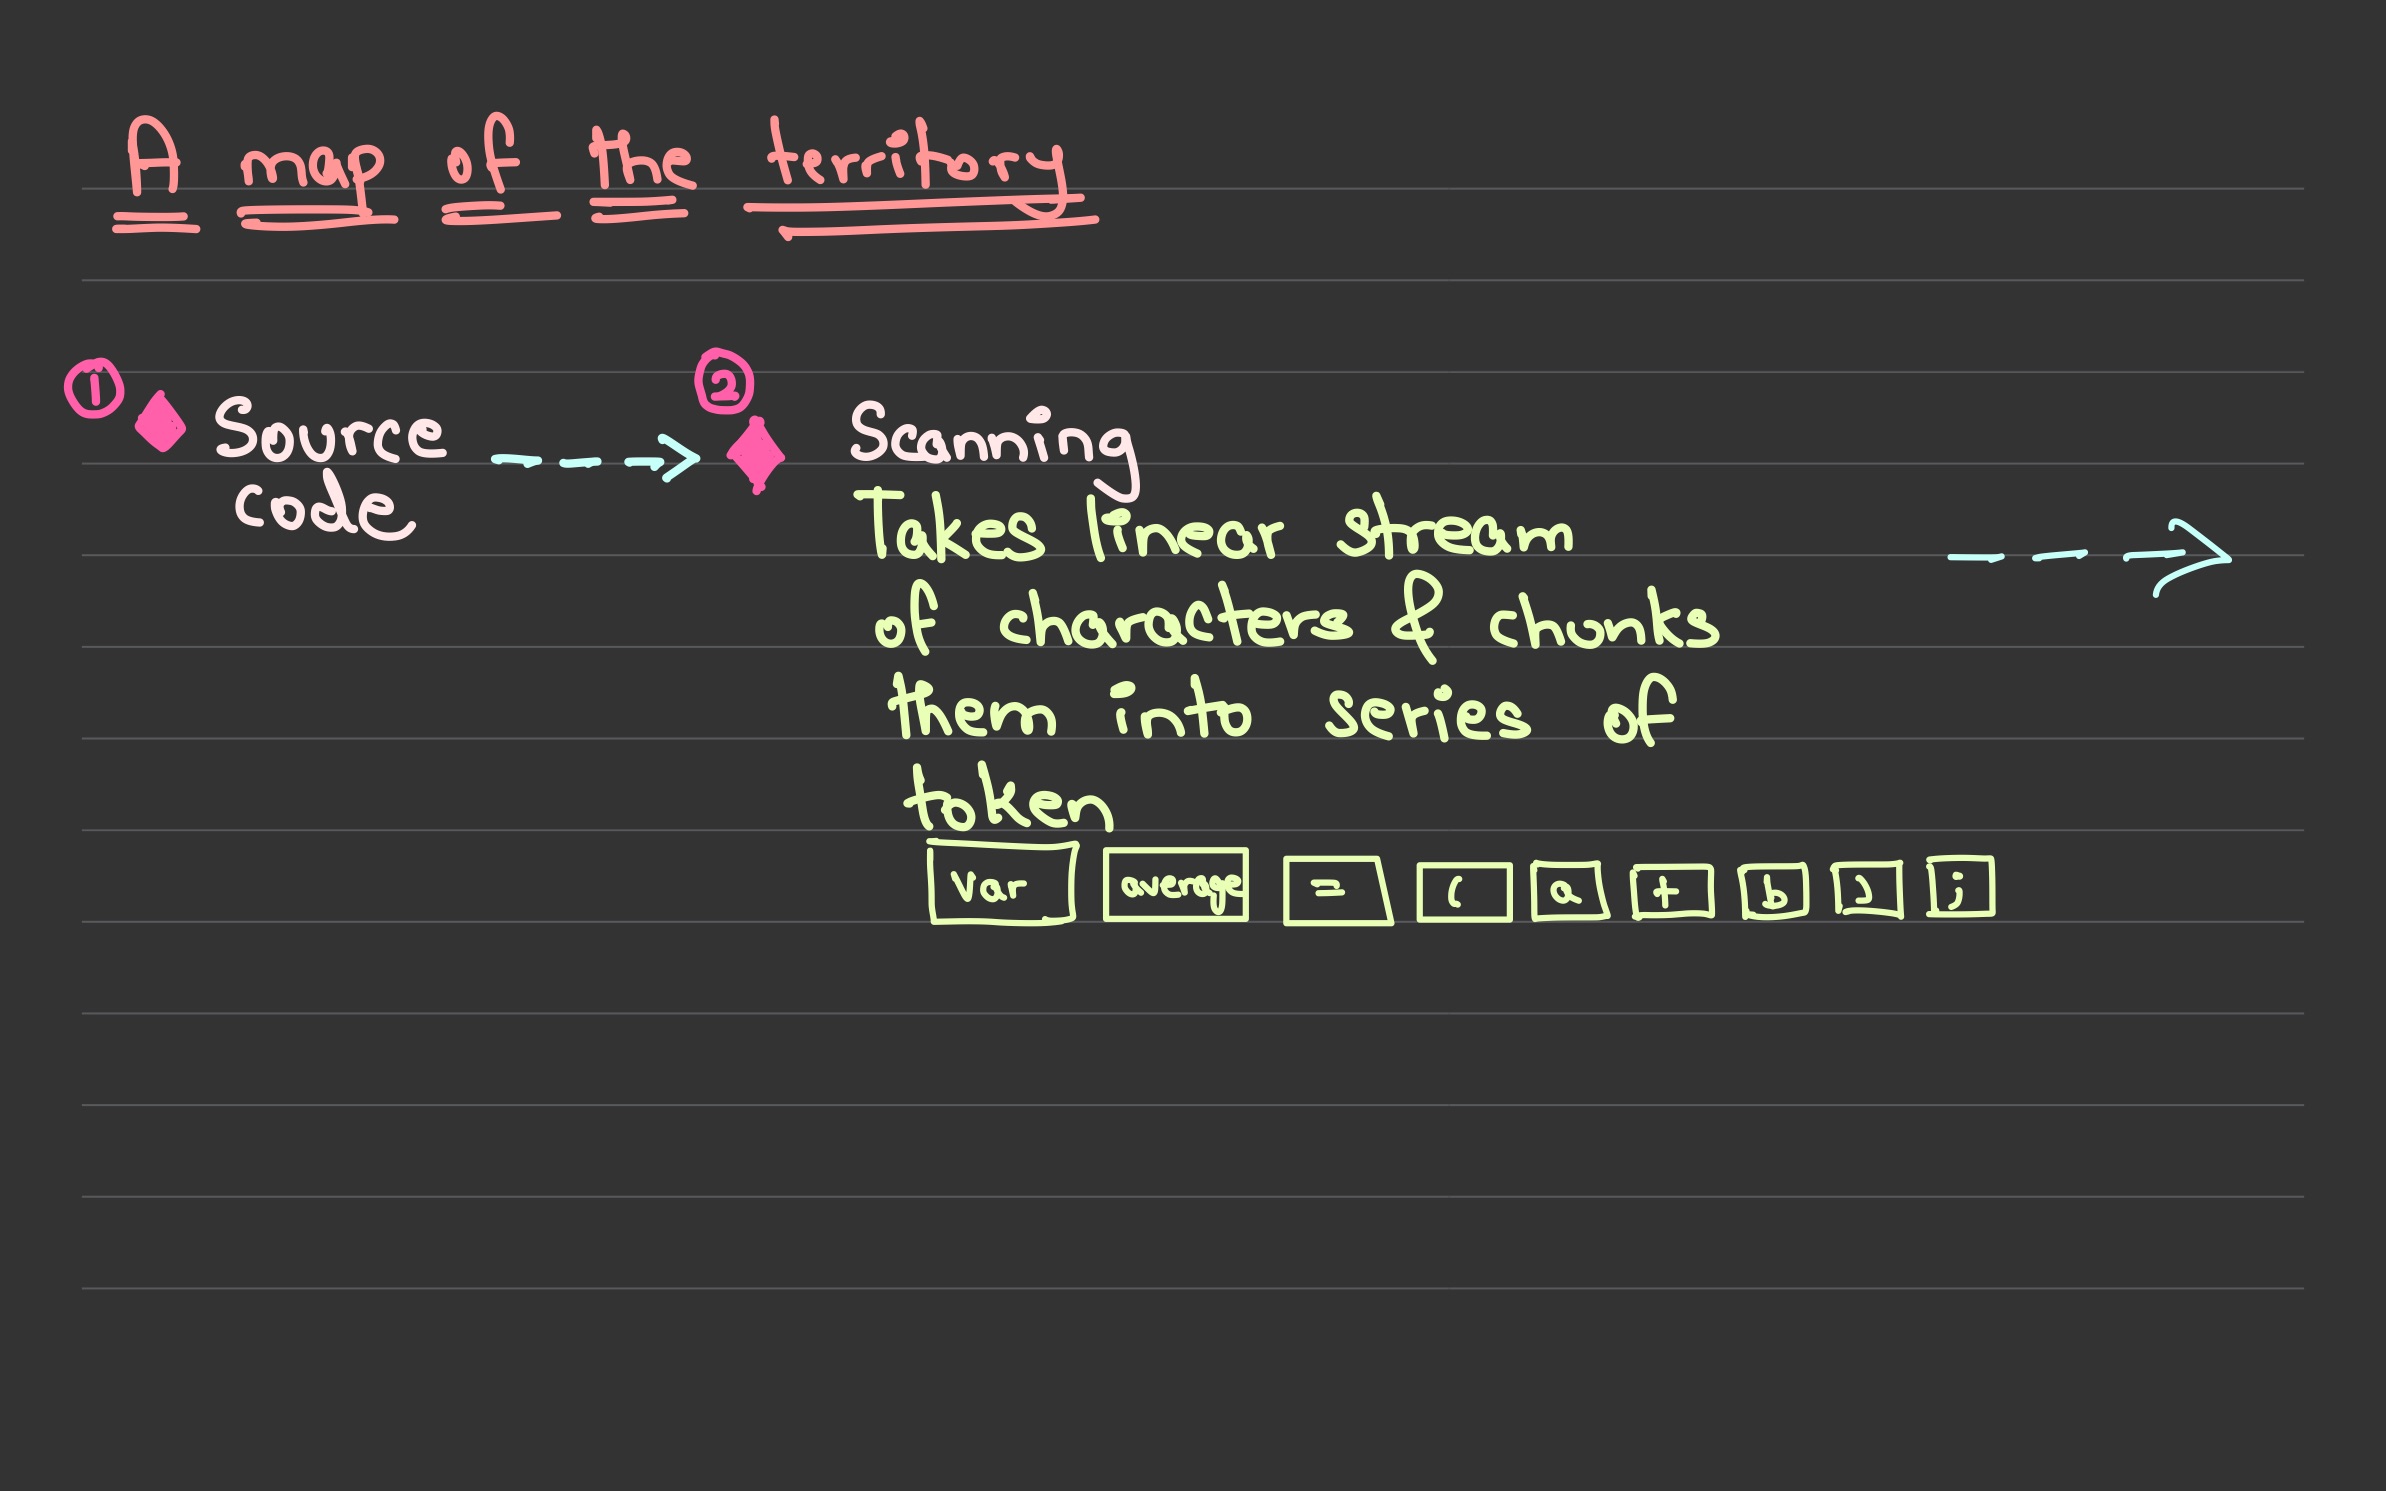 A map of the territory
1
Source
code
2
Scanning
Takes linear stream
of characters & chunks
them into series of
token
Var average = ( a + b ) ;